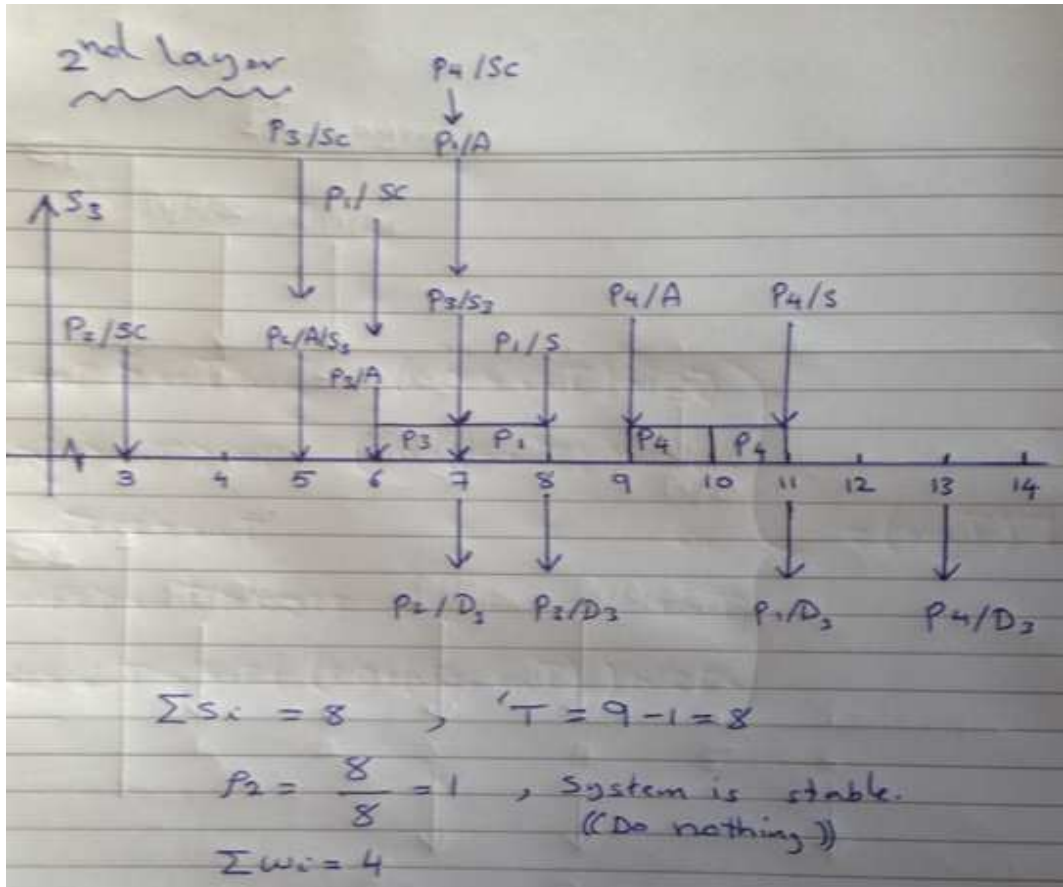 2nd layer
P4/SC
P3/SC P1/A
P1/SC
S3
P3/S3 P4/A P4/S
P2/SC P2/A/S3 P1/S
P3/A
P3 P1 P4 P4
3 4 5 6 7 8 9 10 11 12 13 14
P2/D3 P3/D3 P1/D3 P4/D3
ΣSi = 8 , T = 9-1 = 8
ρ2 = 8/8 = 1 , System is stable.
((Do nothing))
Σwi = 4